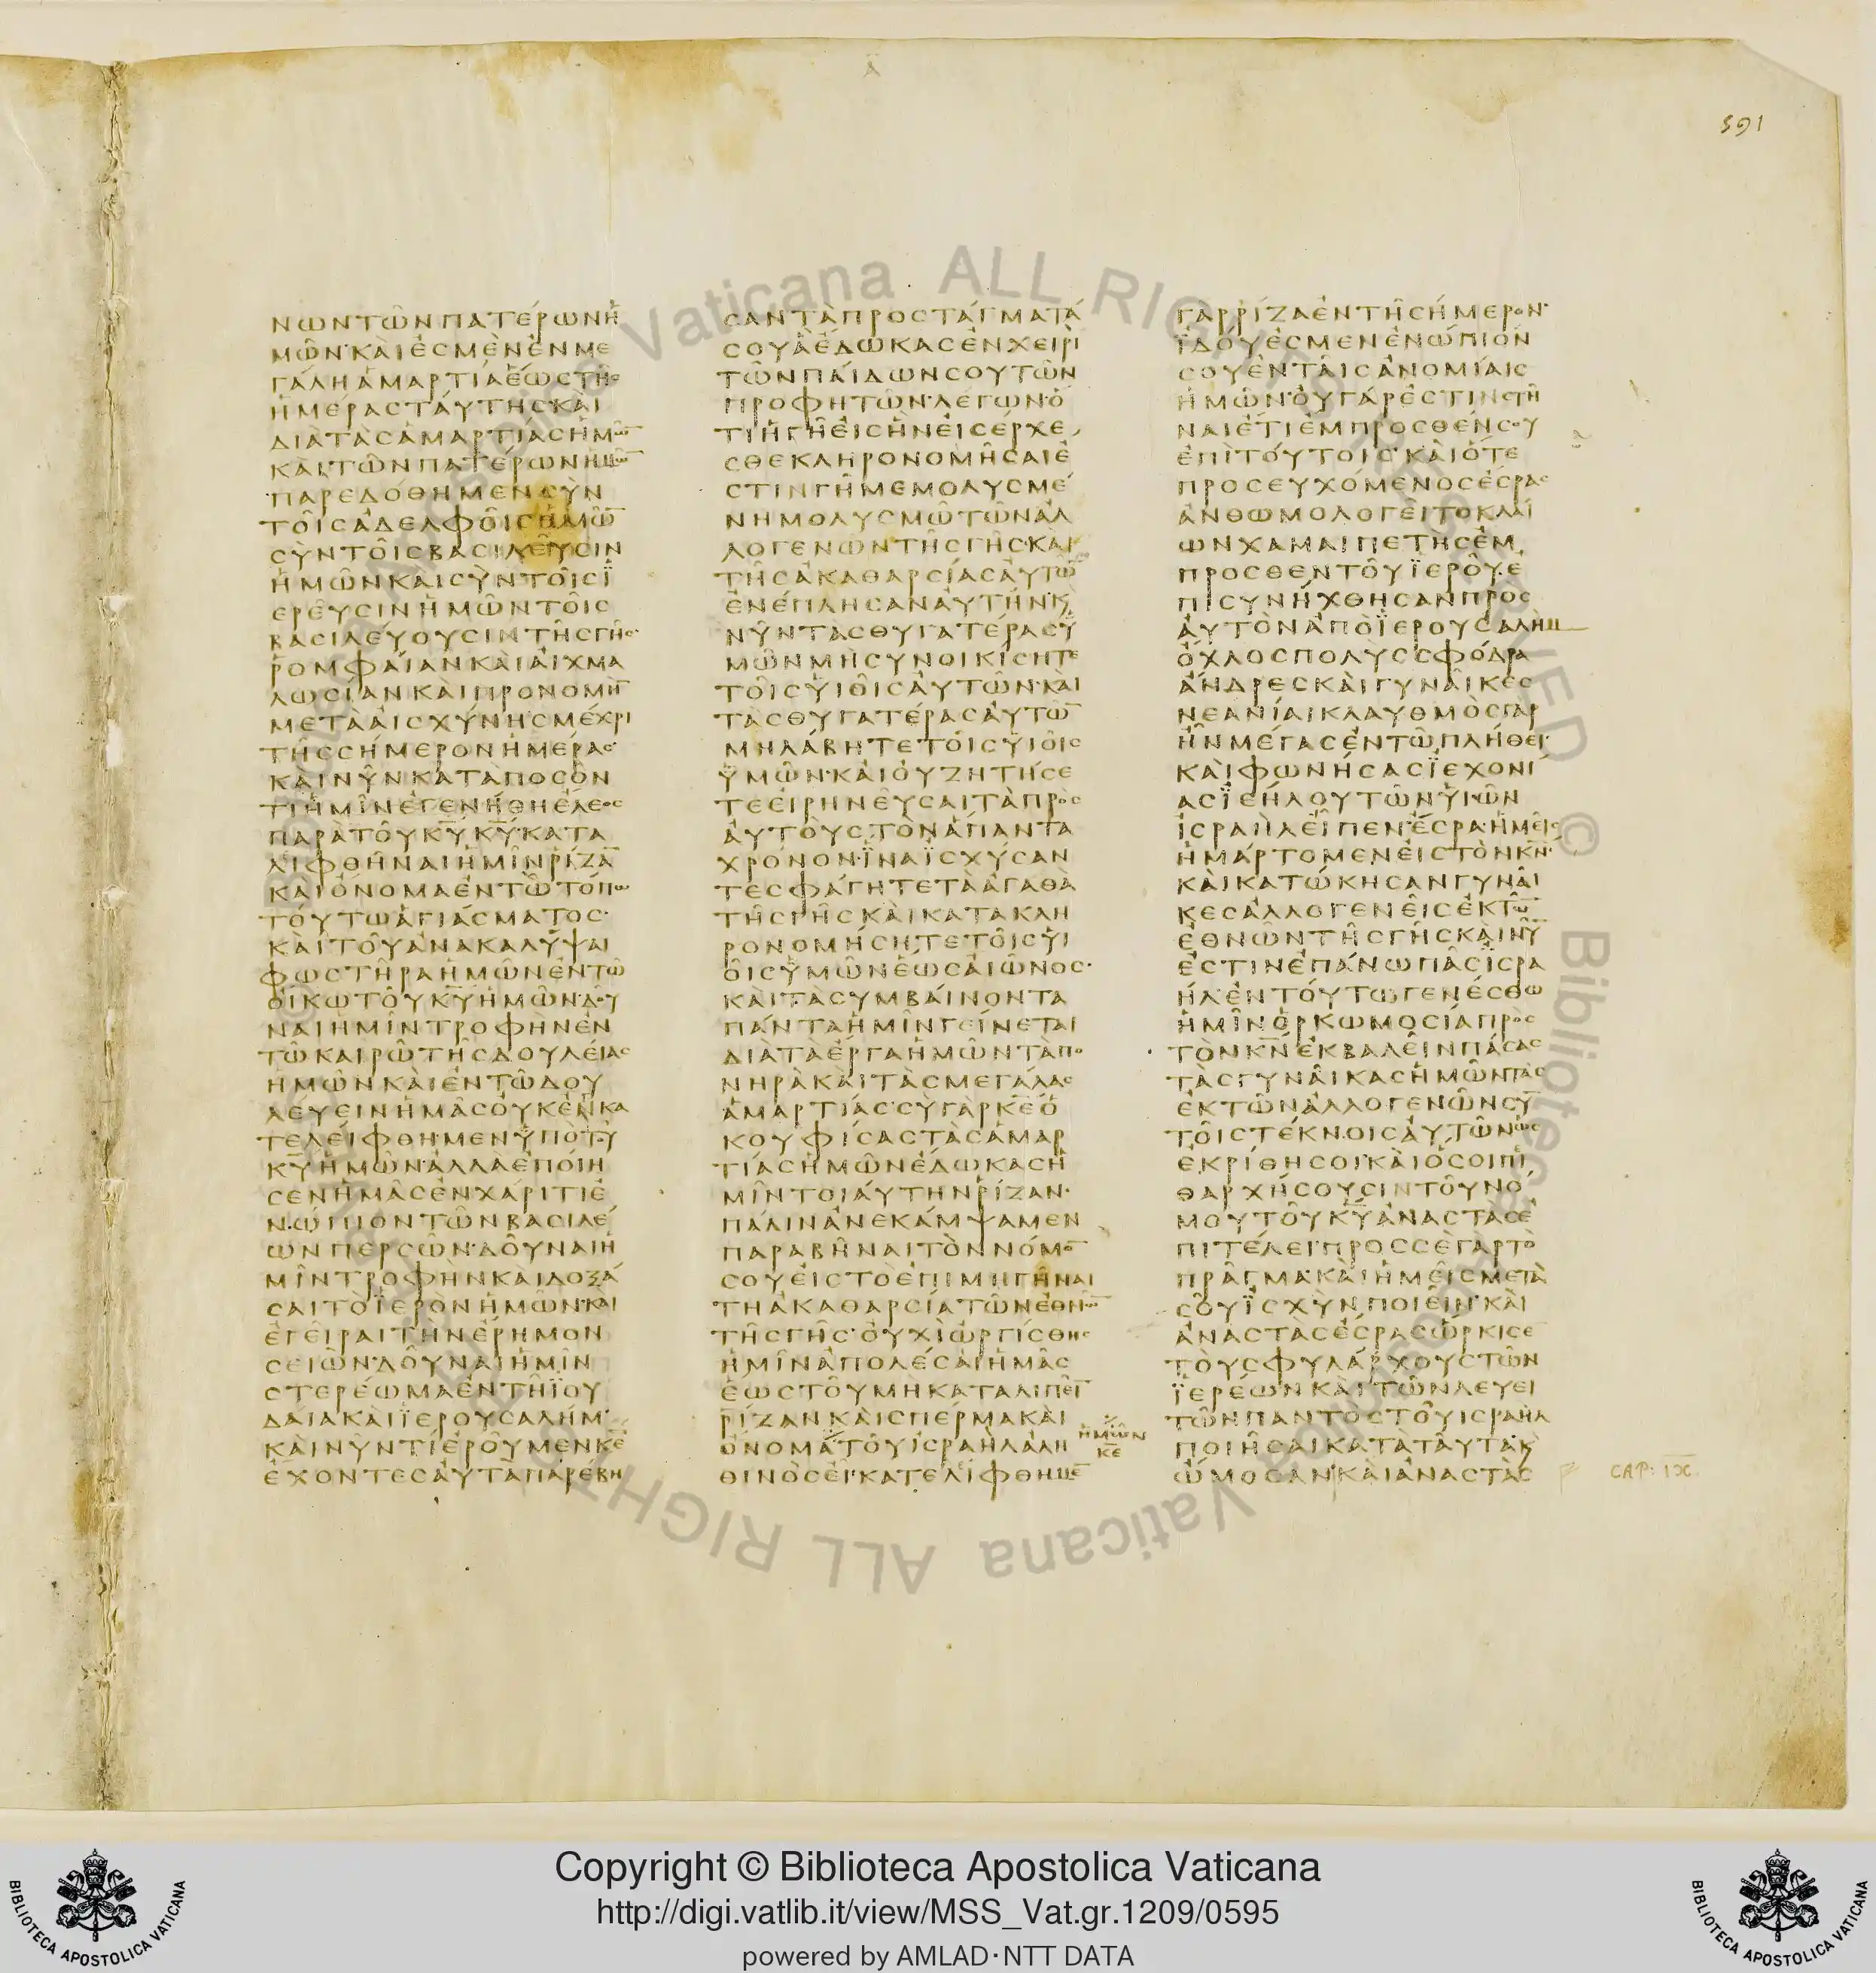 591
ΝΩΝΤΩΝΠΑΤΕΡΩΝΗ
ΜΩΝ·ΚΑΙΕϹΜΕΝΕΝΜΕ
ΓΑΛΗΑΜΑΡΤΙΑΕΩϹΤΗϹ
ΗΜΕΡΑϹΤΑΥΤΗϹ·ΚΑΙ
ΔΙΑΤΑϹΑΜΑΡΤΙΑϹΗΜΩ̅
ΚΑΙΤΩΝΠΑΤΕΡΩΝΗΜΩ̅
ΠΑΡΕΔΟΘΗΜΕΝϹΥΝ
ΤΟΙϹΑΔΕΛΦΟΙϹΗΜΩ̅
ϹΥΝΤΟΙϹΒΑϹΙΛΕΥϹΙΝ
ΗΜΩΝΚΑΙϹΥΝΤΟΙϹΪ
ΕΡΕΥϹΙΝΗΜΩΝΤΟΙϹ
ΒΑϹΙΛΕΥΟΥϹΙΝΤΗϹΓΗϹ·
ΡΟΜΦΑΙΑΝΚΑΙΑΙΧΜΑ
ΛΩϹΙΑΝΚΑΙΠΡΟΝΟΜΗ̅
ΜΕΤΑΑΙϹΧΥΝΗϹΜΕΧΡΙ
ΤΗϹϹΗΜΕΡΟΝΗΜΕΡΑϹ·
ΚΑΙΝΥΝΚΑΤΑΠΟϹΟΝ
ΤΙΗΜΙΝΕΓΕΝΗΘΗΕΛΕΟϹ
ΠΑΡΑΤΟΥΚ̅Υ̅Κ̅Υ̅·ΚΑΤΑ
ΛΙΦΘΗΝΑΙΗΜΙΝΡΙΖΑ̅
ΚΑΙΟΝΟΜΑΕΝΤΩΤΟΠΩ
ΤΟΥΤΩΑΓΙΑϹΜΑΤΟϹ·
ΚΑΙΤΟΥΑΝΑΚΑΛΥΨΑΙ
ΦΩϹΤΗΡΑΗΜΩΝΕΝΤΩ
ΟΙΚΩΤΟΥΚ̅Υ̅ΗΜΩΝ·ΔΟΥ
ΝΑΙΗΜΙΝΤΡΟΦΗΝΕΝ
ΤΩΚΑΙΡΩΤΗϹΔΟΥΛΕΙΑϹ
ΗΜΩΝΚΑΙΕΝΤΩΔΟΥ
ΛΕΥΕΙΝΗΜΑϹΟΥΚΕΝΚΑ
ΤΕΛΕΙΦΘΗΜΕΝΥΠΟΤΟΥ
Κ̅Υ̅ΗΜΩΝ·ΑΛΛΑΕΠΟΙΗ
ϹΕΝΗΜΑϹΕΝΧΑΡΙΤΙΕ
ΝΩΠΙΟΝΤΩΝΒΑϹΙΛΕ
ΩΝΠΕΡϹΩΝ·ΔΟΥΝΑΙΗ
ΜΙΝΤΡΟΦΗΝΚΑΙΔΟΞΑ
ϹΑΙΤΟΪΕΡΟΝΗΜΩΝ·ΚΑΙ
ΕΓΕΙΡΑΙΤΗΝΕΡΗΜΟΝ
ϹΕΙΩΝ·ΔΟΥΝΑΙΗΜΙΝ
ϹΤΕΡΕΩΜΑΕΝΤΗΪΟΥ
ΔΑΙΑΚΑΙΪΕΡΟΥϹΑΛΗΜ·
ΚΑΙΝΥΝΤΙΕΡΟΥΜΕΝΚ̅Ε̅
ΕΧΟΝΤΕϹΑΥΤΑΠΑΡΕΒΗ
ϹΑΝΤΑΠΡΟϹΤΑΓΜΑΤΑ
ϹΟΥΑΕΔΩΚΑϹΕΝΧΕΙΡΙ
ΤΩΝΠΑΙΔΩΝϹΟΥΤΩΝ
ΠΡΟΦΗΤΩΝ·ΛΕΓΩΝ·Ο
ΤΙΗΓΗΕΙϹΗΝΕΙϹΕΡΧΕ
ϹΘΕΚΛΗΡΟΝΟΜΗϹΑΙΕ
ϹΤΙΝΓΗΜΕΜΟΛΥϹΜΕ
ΝΗΜΟΛΥϹΜΩΤΩΝΑΛ
ΛΟΓΕΝΩΝΤΗϹΓΗϹ·ΚΑΙ
ΤΗϹΑΚΑΘΑΡϹΙΑϹΑΥΤΩ̅
ΕΝΕΠΛΗϹΑΝΑΥΤΗΝ·Κ
ΝΥΝΤΑϹΘΥΓΑΤΕΡΑϹΫ
ΜΩΝΜΗϹΥΝΟΙΚΙϹΗΤΕ
ΤΟΙϹΥΙΟΙϹΑΥΤΩΝ·ΚΑΙ
ΤΑϹΘΥΓΑΤΕΡΑϹΑΥΤΩ̅
ΜΗΛΑΒΗΤΕΤΟΙϹΥΙΟΙϹ
ΫΜΩΝ·ΚΑΙΟΥΖΗΤΗϹΕ
ΤΕΕΙΡΗΝΕΥϹΑΙΤΑΠΡΟϹ
ΑΥΤΟΥϹΤΟΝΑΠΑΝΤΑ
ΧΡΟΝΟΝ·ΪΝΑΪϹΧΥϹΑΝ
ΤΕϹΦΑΓΗΤΕΤΑΑΓΑΘΑ
ΤΗϹΓΗϹΚΑΙΚΑΤΑΚΛΗ
ΡΟΝΟΜΗϹΗΤΕΤΟΙϹΥΙ
ΟΙϹΫΜΩΝΕΩϹΑΙΩΝΟϹ·
ΚΑΙΤΑϹΥΜΒΑΙΝΟΝΤΑ
ΠΑΝΤΑΗΜΙΝΓΕΙΝΕΤΑΙ
ΔΙΑΤΑΕΡΓΑΗΜΩΝΤΑΠΟ
ΝΗΡΑΚΑΙΤΑϹΜΕΓΑΛΑϹ
ΑΜΑΡΤΙΑϹ·ϹΥΓΑΡΚ̅Ε̅Ο
ΚΟΥΦΙϹΑϹΤΑϹΑΜΑΡ
ΤΙΑϹΗΜΩΝΕΔΩΚΑϹΗ
ΜΙΝΤΟΙΑΥΤΗΝΡΙΖΑΝ·
ΠΑΛΙΝΑΝΕΚΑΜΨΑΜΕΝ
ΠΑΡΑΒΗΝΑΙΤΟΝΝΟΜΟ̅
ϹΟΥΕΙϹΤΟΕΠΙΜΙΓΗΝΑΙ
ΤΗΑΚΑΘΑΡϹΙΑΤΩΝΕΘΝΩ̅
ΤΗϹΓΗϹ·ΟΥΧΙΩΡΓΙϹΘΗϹ
ΗΜΙΝΑΠΟΛΕϹΑΙΗΜΑϹ
ΕΩϹΤΟΥΜΗΚΑΤΑΛΙΠΕΙ̅
ΡΙΖΑΝΚΑΙϹΠΕΡΜΑΚΑΙ
ΟΝΟΜΑΤΟΥΙϹΡΑΗΛΑΛΗ
ΗΜΩΝ
Κ̅Ε̅
ΘΙΝΟϹΕΙ·ΚΑΤΕΛΙΦΘΗΜΕ̅
ΓΑΡΡΙΖΑΕΝΤΗϹΗΜΕΡΟΝ·
ΪΔΟΥΕϹΜΕΝΕΝΩΠΙΟΝ
ϹΟΥΕΝΤΑΙϹΑΝΟΜΙΑΙϹ
ΗΜΩΝ·ΟΥΓΑΡΕϹΤΙΝϹΤΗ
ΝΑΙΕΤΙΕΜΠΡΟϹΘΕΝϹΟΥ
ΕΠΙΤΟΥΤΟΙϹ·ΚΑΙΟΤΕ
ΠΡΟϹΕΥΧΟΜΕΝΟϹΕϹΡΑϹ
ΑΝΘΩΜΟΛΟΓΕΙΤΟΚΛΑΙ
ΩΝΧΑΜΑΙΠΕΤΗϹΕΜ
ΠΡΟϹΘΕΝΤΟΥΪΕΡΟΥ·Ε
ΠΙϹΥΝΗΧΘΗϹΑΝΠΡΟϹ
ΑΥΤΟΝΑΠΟΪΕΡΟΥϹΑΛΗΜ
ΟΧΛΟϹΠΟΛΥϹϹΦΟΔΡΑ
ΑΝΔΡΕϹΚΑΙΓΥΝΑΙΚΕϹ
ΝΕΑΝΙΑΙΚΛΑΥΘΜΟϹΓΑΡ
ΗΝΜΕΓΑϹΕΝΤΩΠΛΗΘΕΙ·
ΚΑΙΦΩΝΗϹΑϹΪΕΧΟΝΙ
ΑϹΪΕΗΛΟΥΤΩΝΥΙΩΝ
ΙϹΡΑΗΛΕΙΠΕΝ·ΕϹΡΑ·ΗΜΕΙϹ
ΗΜΑΡΤΟΜΕΝΕΙϹΤΟΝΚ̅Ν̅·
ΚΑΙΚΑΤΩΚΗϹΑΝΓΥΝΑΙ
ΚΕϹΑΛΛΟΓΕΝΕΙϹΕΚΤΩ̅
ΕΘΝΩΝΤΗϹΓΗϹΚΑΙΝΥ̅
ΕϹΤΙΝΕΠΑΝΩΠΑϹΙϹΡΑ
ΗΛ·ΕΝΤΟΥΤΩΓΕΝΕϹΘΩ
ΗΜΙΝΟΡΚΩΜΟϹΙΑΠΡΟϹ
ΤΟΝΚ̅Ν̅ΕΚΒΑΛΕΙΝΠΑϹΑϹ
ΤΑϹΓΥΝΑΙΚΑϹΗΜΩΝΤΑϹ
ΕΚΤΩΝΑΛΛΟΓΕΝΩΝϹΥ̅
ΤΟΙϹΤΕΚΝΟΙϹΑΥΤΩΝΩϹ
ΕΚΡΙΘΗϹΟΙ·ΚΑΙΟϹΟΙΠΙ
ΘΑΡΧΗϹΟΥϹΙΝΤΟΥΝΟ
ΜΟΥΤΟΥΚ̅Υ̅ΑΝΑϹΤΑϹΕ
ΠΙΤΕΛΕΙ·ΠΡΟϹϹΕΓΑΡΤΟ
ΠΡΑΓΜΑ·ΚΑΙΗΜΕΙϹΜΕΤΑ
ϹΟΥΪϹΧΥΝΠΟΙΕΙΝ·ΚΑΙ
ΑΝΑϹΤΑϹΕϹΡΑϹΩΡΚΙϹΕ
ΤΟΥϹΦΥΛΑΡΧΟΥϹΤΩΝ
ΪΕΡΕΩΝΚΑΙΤΩΝΛΕΥΕΙ
ΤΩΝΠΑΝΤΟϹΤΟΥΙϹΡΑΗΛ
ΠΟΙΗϹΑΙΚΑΤΑΤΑΥΤΑ·Κ
ΩΜΟϹΑΝ·ΚΑΙΑΝΑϹΤΑϹ
CAP: IX.
Vaticana ALL RIGHTS RESERVED © Biblioteca
Vaticana ALL RIGHTS
Copyright © Biblioteca Apostolica Vaticana
http://digi.vatlib.it/view/MSS_Vat.gr.1209/0595
powered by AMLAD·NTT DATA
BIBLIOTECA APOSTOLICA VATICANA
BIBLIOTECA APOSTOLICA VATICANA